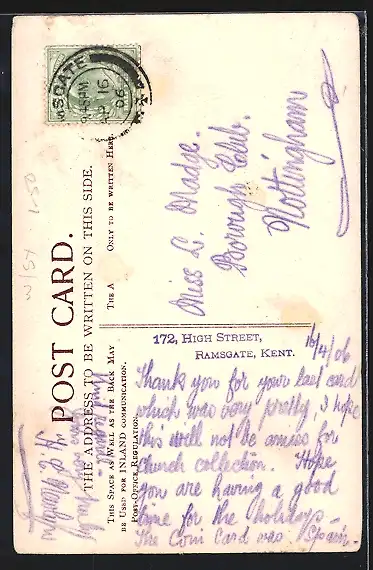 POST CARD.
THE ADDRESS TO BE WRITTEN ON THIS SIDE.
THIS SPACE AS WELL AS THE BACK MAY
BE USED FOR INLAND COMMUNICATION.
POST OFFICE REGULATION.
THE A ONLY TO BE WRITTEN HERE.
SGATE
45PM
16
06
W/Sx 1-50
Miss L. Madge.
Borough Club.
Nottingham
172, HIGH STREET,
RAMSGATE, KENT.
16/4/06
Thank you for your last card
which was very pretty, I hope
this will not be amiss for
church collection. Hope
you are having a good
time for the holidays –
the Coin Card was Spain –